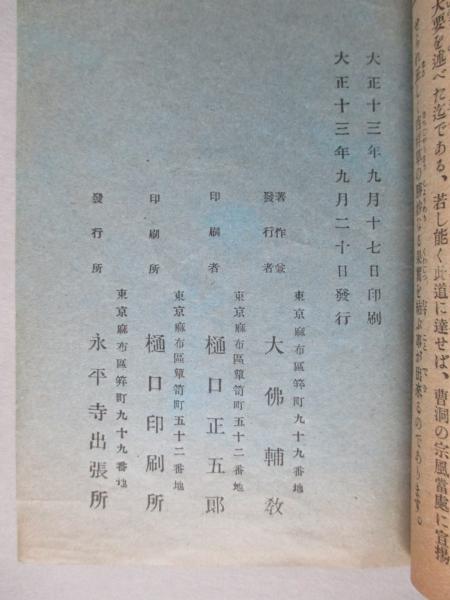 大要を述べた迄である、若し能く此道に達せば、曹洞の宗風當處に宣揚
大正十三年九月十七日印刷
大正十三年九月二十日發行
著作兼
發行者
東京麻布區笄町九十九番地
大佛輔敎
印刷者
東京麻布區簞笥町五十二番地
樋口正五郎
印刷所
東京麻布區簞笥町五十二番地
樋口印刷所
發行所
東京麻布區笄町九十九番地
永平寺出張所